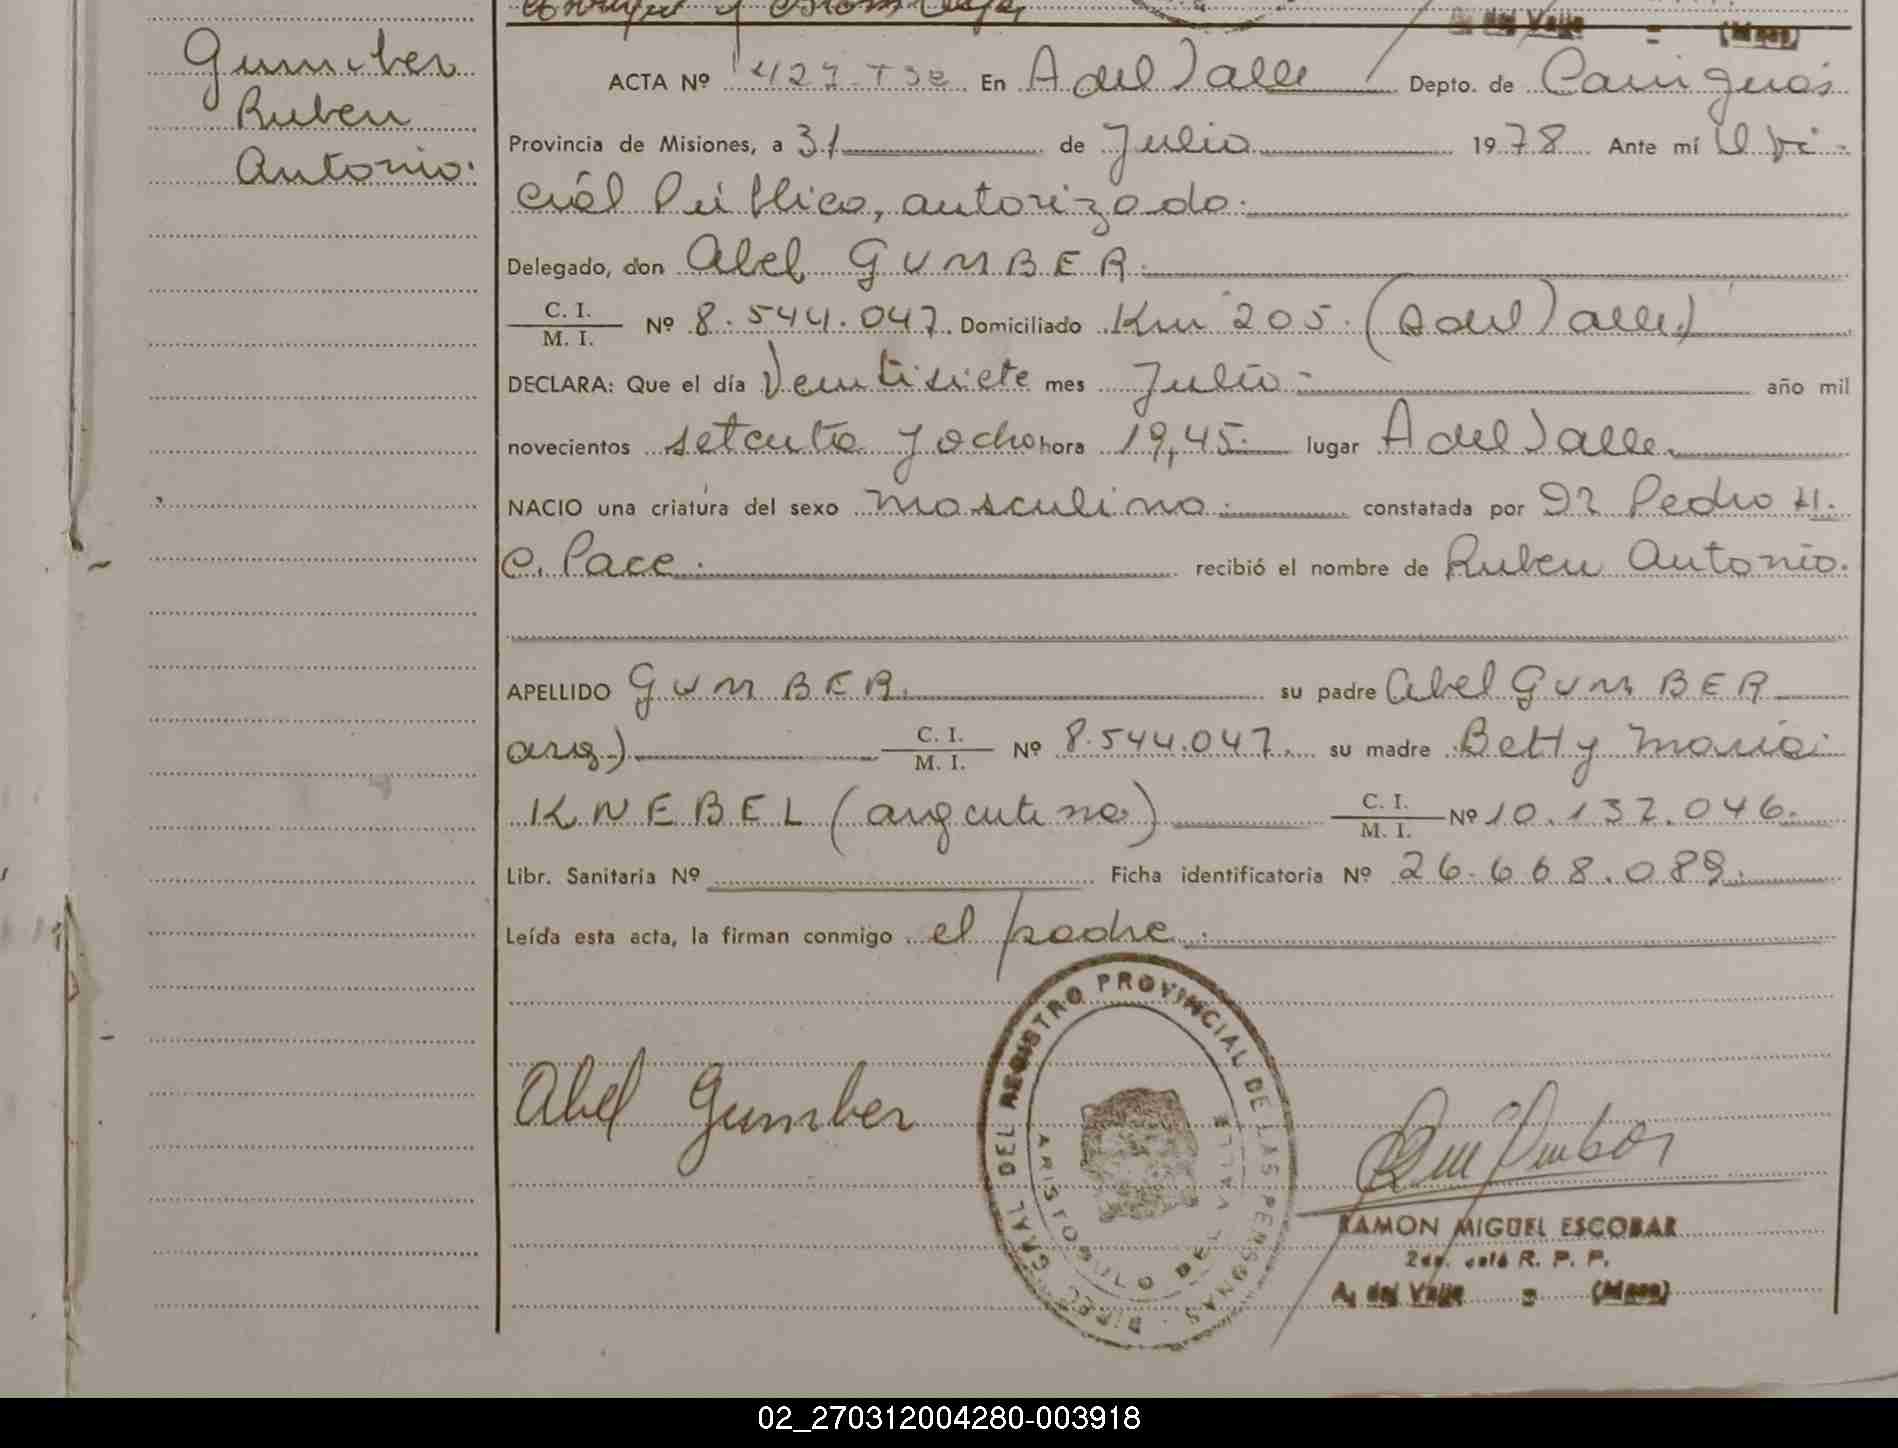 A. del Valle = (Mnes)
Gumber
Ruben
Antonio.
ACTA Nº 427-T3e En A del Valle Depto. de Cainguás
Provincia de Misiones, a 31 de Julio 1978 Ante mí Ofi-
ciál Público, autorizado.
Delegado, don Abel GUMBER.
C. I.
M. I. Nº 8.544.047. Domiciliado Km 205. (A del Valle)
DECLARA: Que el día Veintisiete mes Julio.- año mil
novecientos setenta y ocho hora 19,45. lugar A del Valle.
NACIO una criatura del sexo masculino. constatada por Dr Pedro H.
C. Pace. recibió el nombre de Ruben Antonio.
APELLIDO GUMBER. su padre Abel GUMBER
arg.) C. I.
M. I. Nº 8.544.047. su madre Betty María
KNEBEL (argentina) C. I.
M. I. Nº 10.132.046.
Libr. Sanitaria Nº Ficha identificatoria Nº 26.668.089.
Leída esta acta, la firman conmigo el padre.
Abel Gumber
DIREC. GRAL DEL REGISTRO PROVINCIAL DE LAS PERSONAS
ARISTOBULO DEL VALLE
RAMON MIGUEL ESCOBAR
R. P. P.
A. del Valle = (Mnes)
02_270312004280-003918